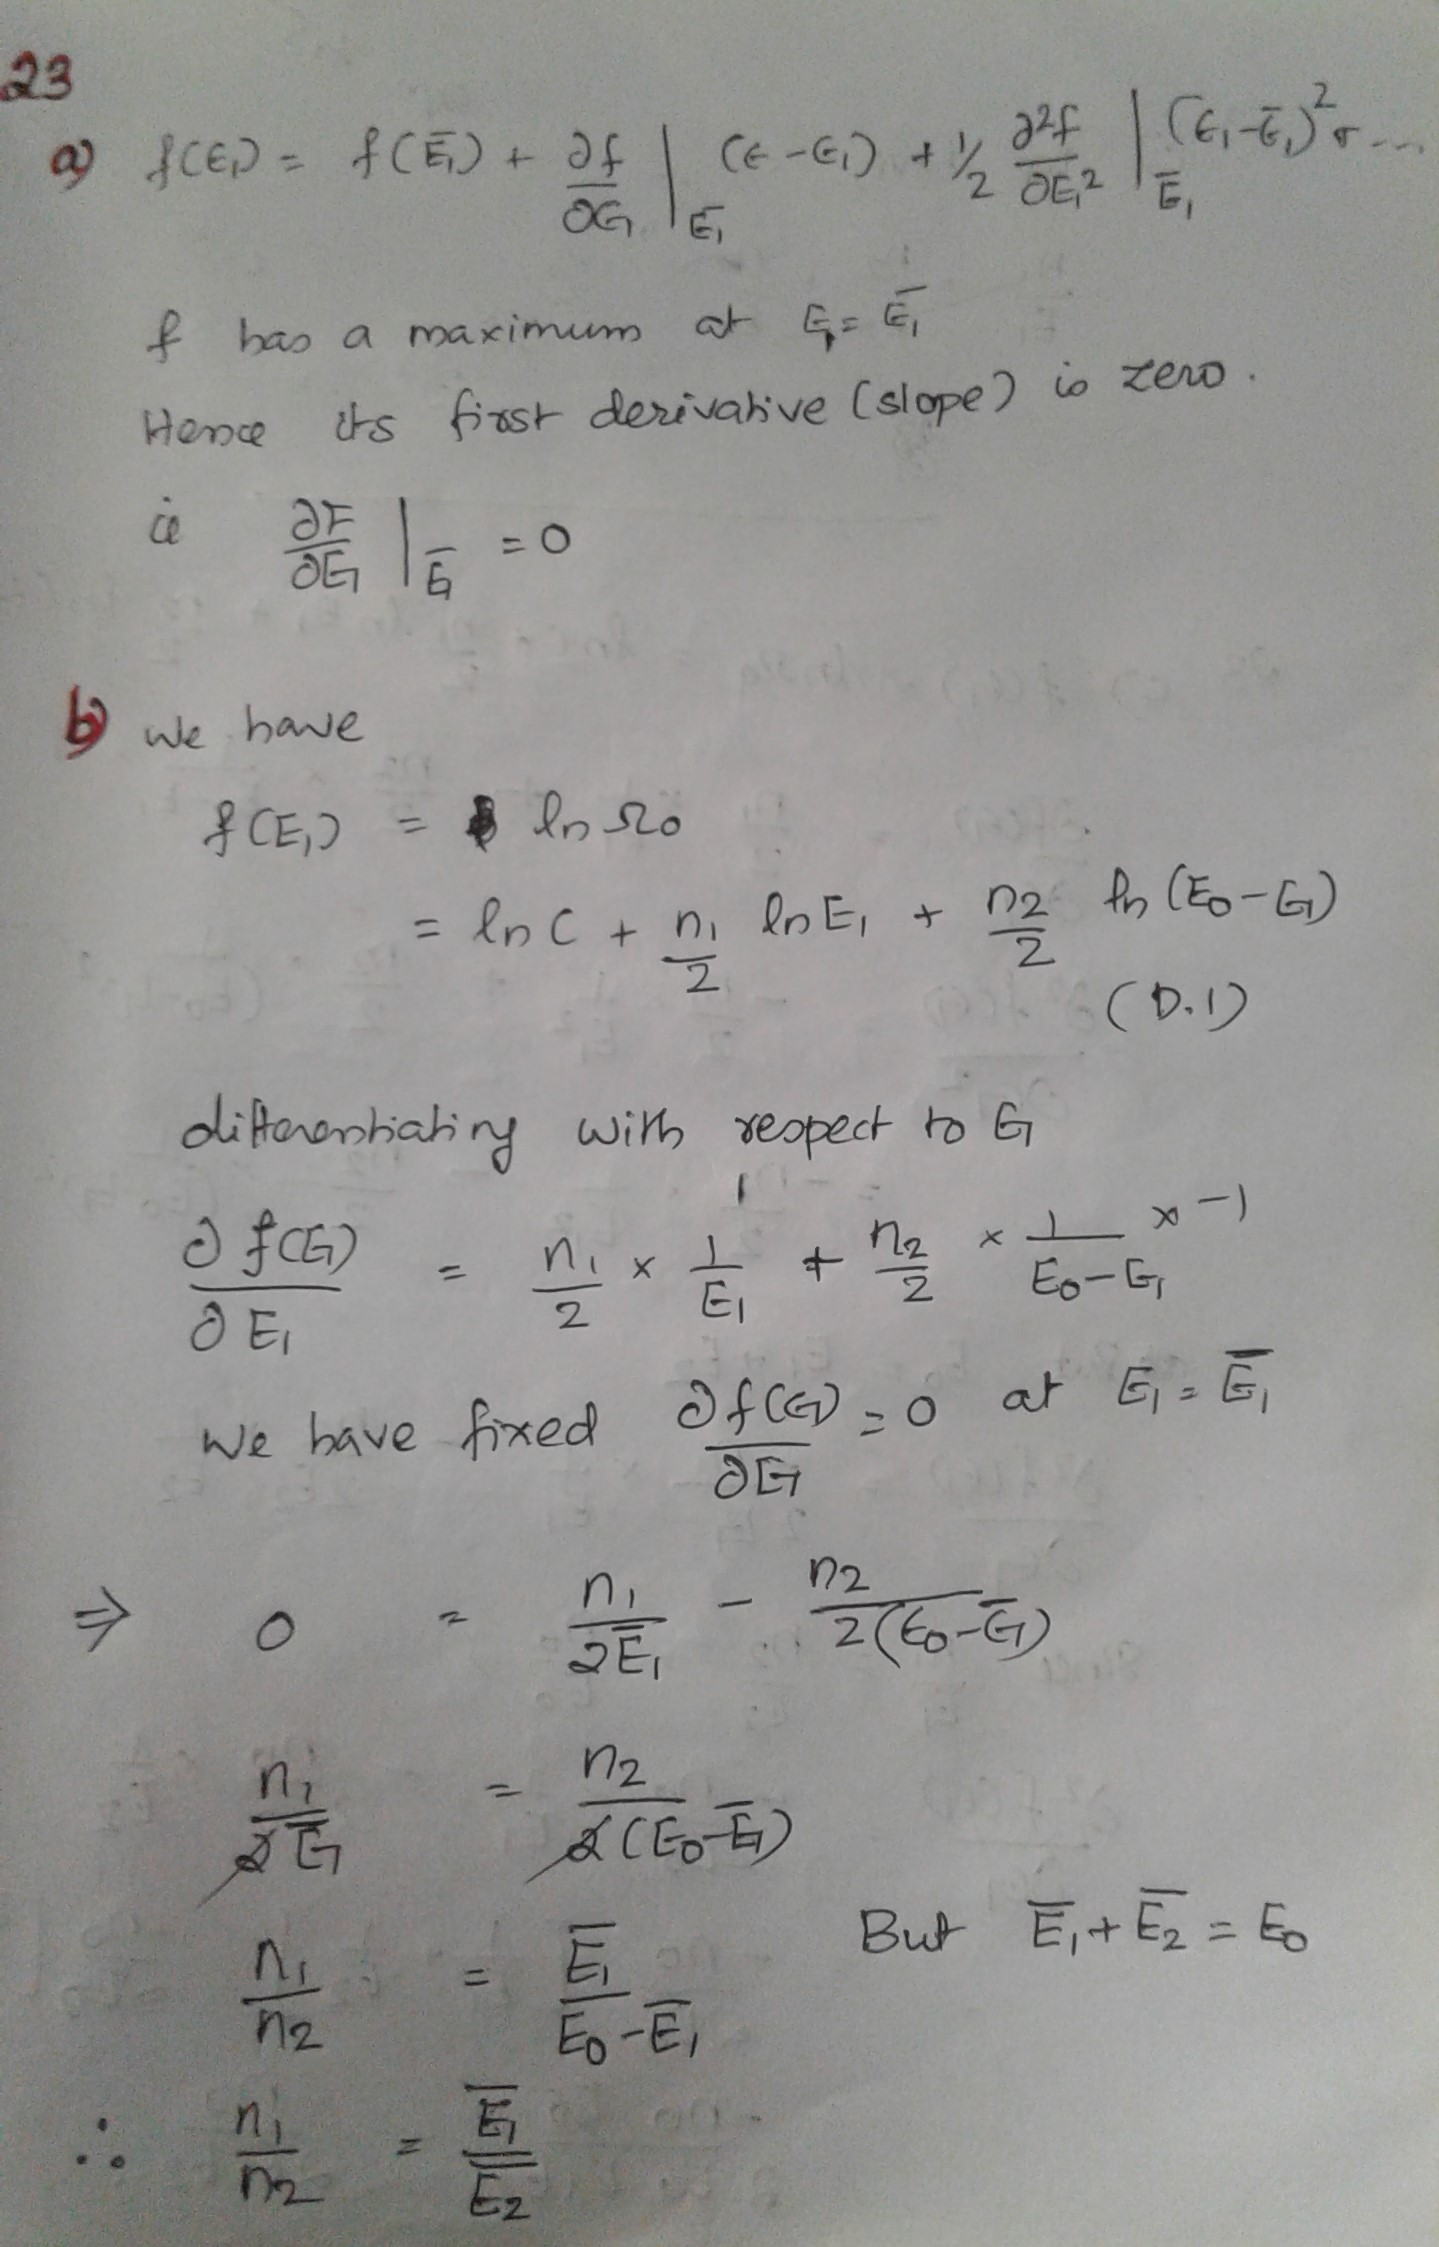 23
a) f(E₁) = f(Ē₁) + ∂f/∂E₁ |Ē₁ (E - E₁) + 1/2 ∂²f/∂E₁² |Ē₁ (E₁ - Ē₁)² + ...
f has a maximum at E₁ = Ē₁
Hence its first derivative (slope) is zero.
ie ∂F/∂E₁ |Ē₁ = 0
b) We have
f(E₁) = ln Ω₀
= ln C + n₁/2 ln E₁ + n₂/2 ln (E₀ - E₁)
(D.1)
differentiating with respect to E₁
∂f(E₁)/∂E₁ = n₁/2 × 1/E₁ + n₂/2 × 1/(E₀ - E₁) × -1
We have fixed ∂f(E₁)/∂E₁ = 0 at E₁ = Ē₁
⇒ 0 = n₁/2Ē₁ - n₂/2(E₀ - Ē₁)
n₁/2Ē₁ = n₂/2(E₀ - Ē₁)
n₁/n₂ = Ē₁/(E₀ - Ē₁) But Ē₁ + Ē₂ = E₀
∴ n₁/n₂ = Ē₁/Ē₂